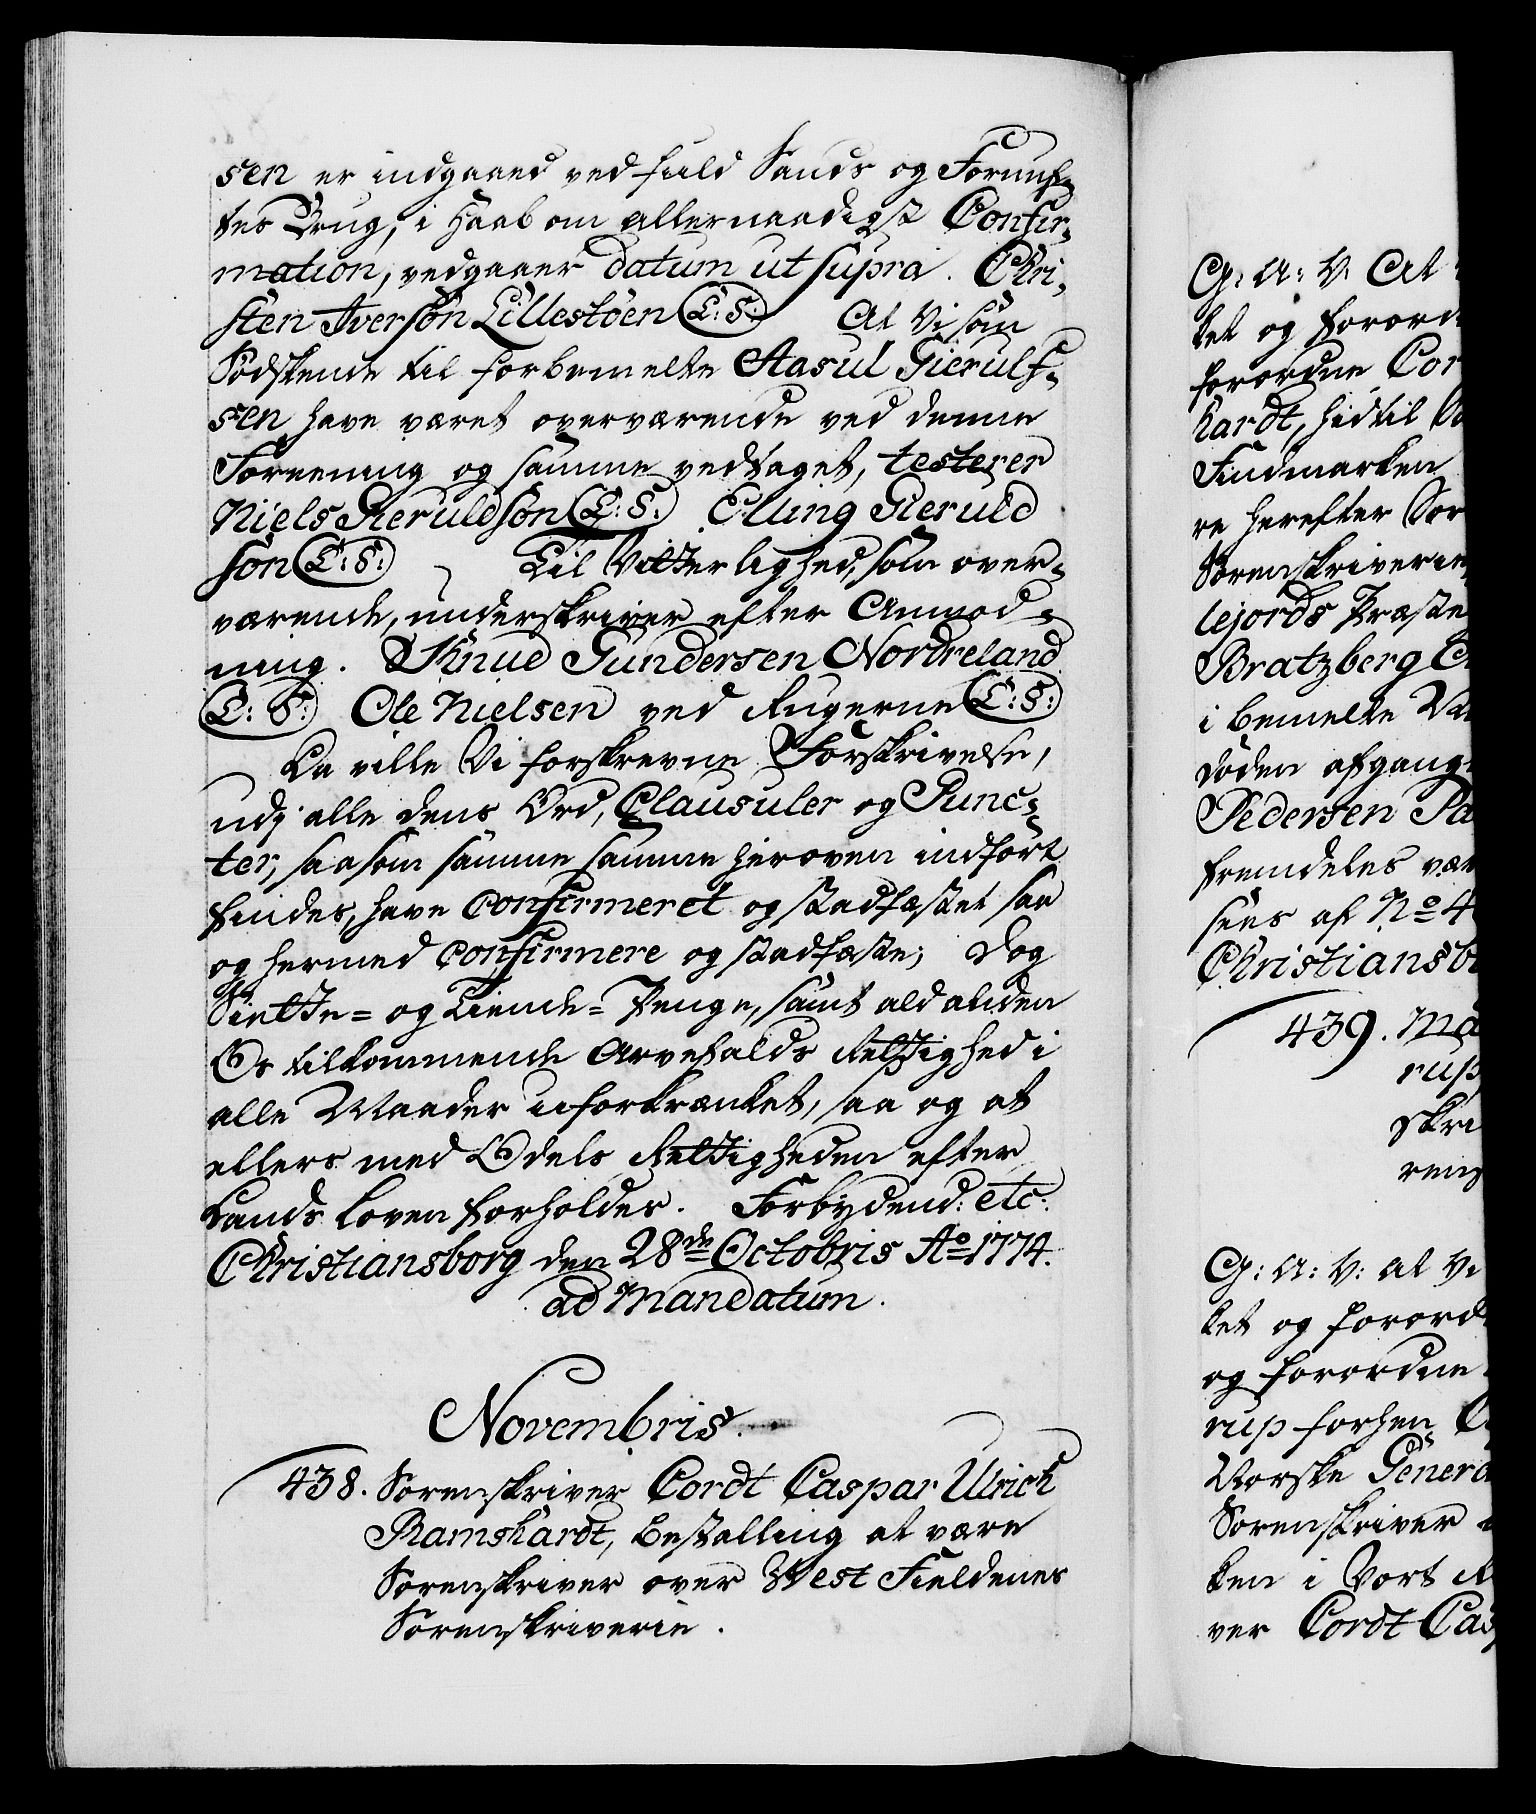 sen er indgaaed ved fuld Sands og Fornuf-
tes Brug, i Haab om allernaadigst Confir-
mation, vedgaaer datum ut supra. Chri-
sten Iversøn Lillestøen (L: S:) At Vi som
Sødskende til forbemelte Aasul Gierulf-
sen have været overværende ved denne
Foreening og samme vedtaget, testerer
Niels Gieruldsøn (L: S:) Elling Gieruld
søn (L: S:) Til Vitterlighed, som over-
værende, underskriver efter Anmod-
ning. Knud Gundersen Nordreland
(L: S:) Ole Nielsen ved Rugerne (L: S:)
Da ville Vi forskrevne Forskrivelse,
udj alle dens Ord, Clausuler og Punc-
ter, saasom samme samme heroven indført
findes, have Confirmeret og stadfæstet saa
og hermed confirmere og stadfæste; Dog
Siette= og Tiende= Penge, samt ald anden
Os tilkommende Arvefalds Rettighed i
alle Maader uforkrænket, saa og at
ellers med Odels Rettigheden efter
Lands Loven forholdes. Forbydend: etc:
Christiansborg den 28de Octobris Ao 1774.
ad Mandatum.
Novembris.
438. Sorenskriver Cordt Caspar Ulrich
Ramshardt, Bestalling at være
Sorenskriver over West Fieldenes
Sorenskriverie.
G: A: V: At
tet og forord
forordne Cor
hardt, hidtil So
Findmarken
re herefter Sor
Sorenskriverie
lejords Præste
Bratzberg
i bemelte
døden afgang
Pedersen Pa
fremdeles vær
sees af No 4
Christiansbo
439. Ma
rup
skri
ren
G: A: V: at Vi
tet og forord
og forordne
rup forhen
Norske Genera
Sorenskriver
ken i Vort
ver Cordt Cas